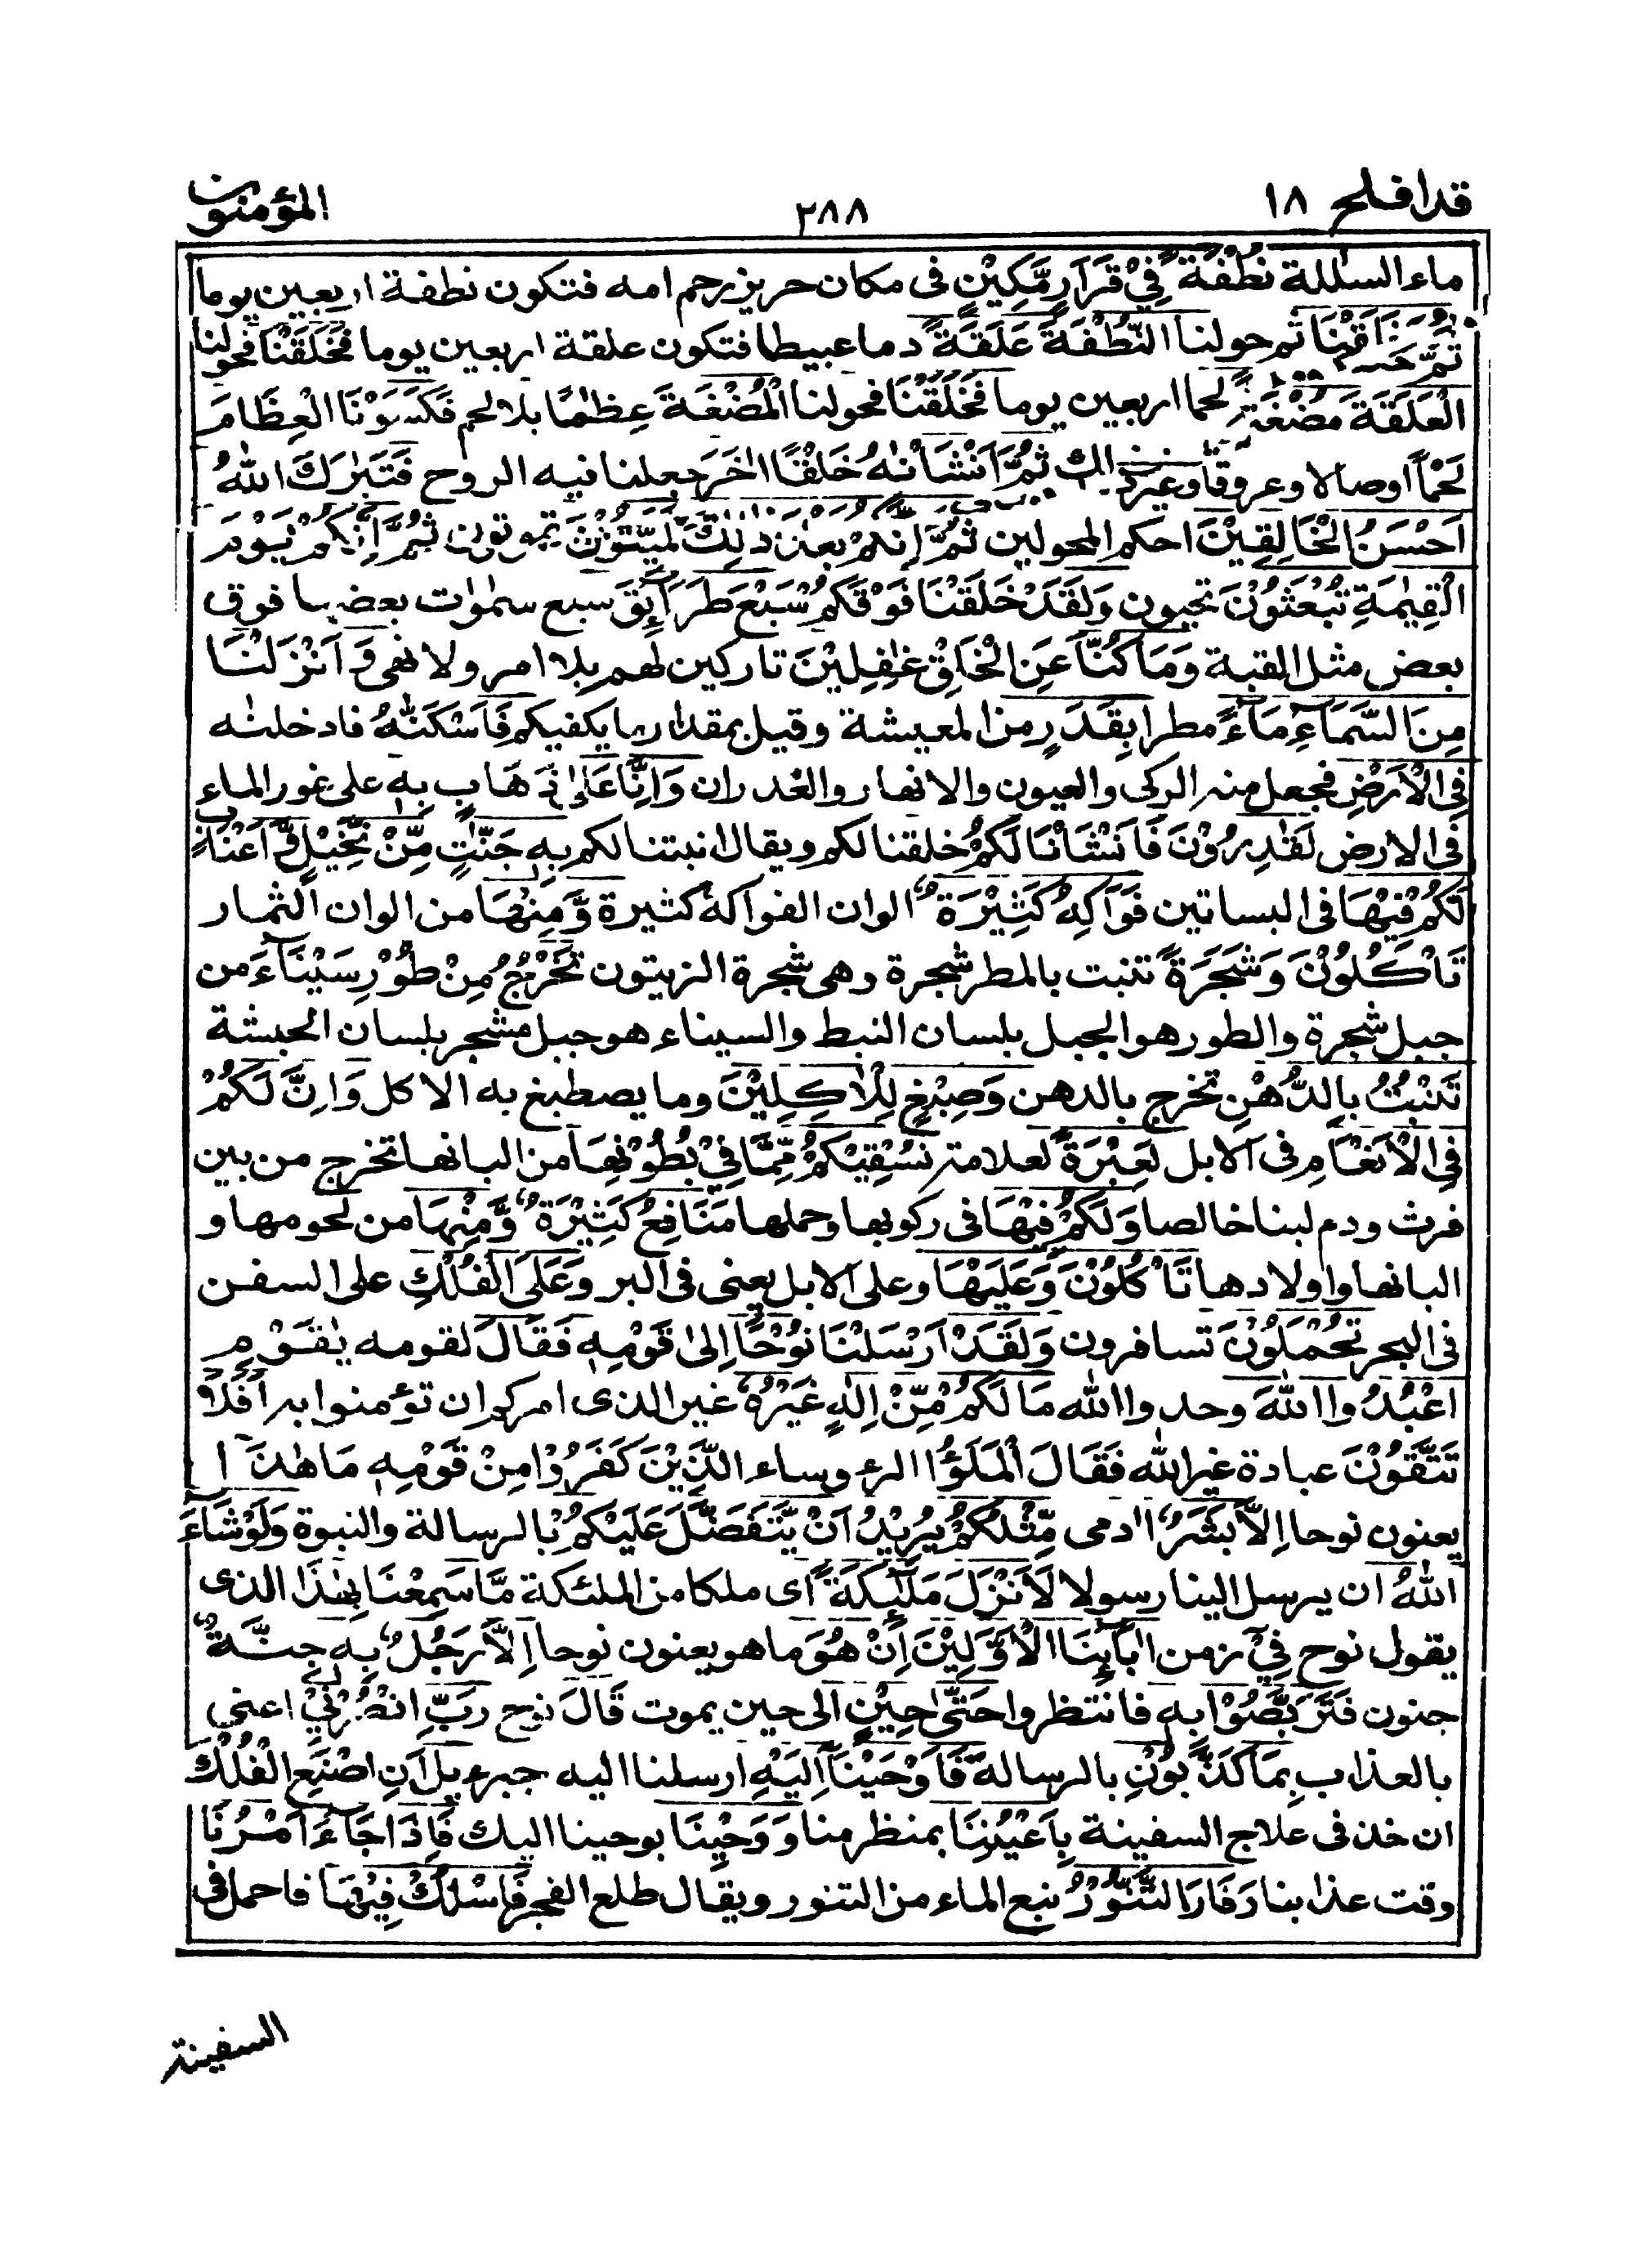 قد افلح ١٨
٢٨٨
المؤمنون
ماء السللة نُطْفَةً فِيْ قَرَارٍ مَّكِيْنٍ فى مكان حريز رحم امه فتكون نطفة اربعين يوما
ثُمَّ خَلَقْنَا ثم حولنا النُّطْفَةَ عَلَقَةً دما عبيطا فتكون علقة اربعين يوما فَخَلَقْنَا فحولنا
الْعَلَقَةَ مُضْغَةً لحما اربعين يوما فَخَلَقْنَا فحولنا الْمُضْغَةَ عِظٰمًا بلا لحم فَكَسَوْنَا الْعِظَامَ
لَحْمًا اوصالا وعروقا وغير ذلك ثُمَّ اَنْشَاْنٰهُ خَلْقًا اٰخَرَ جعلنا فيه الروح فَتَبٰرَكَ اللّٰهُ
اَحْسَنُ الْخَالِقِيْنَ احكم المحولين ثُمَّ اِنَّكُمْ بَعْدَ ذٰلِكَ لَمَيِّتُوْنَ تموتون ثُمَّ اِنَّكُمْ يَوْمَ
الْقِيٰمَةِ تُبْعَثُوْنَ تحيون وَلَقَدْ خَلَقْنَا فَوْقَكُمْ سَبْعَ طَرَآئِقَ سبع سمٰوات بعضها فوق
بعض مثل القبة وَمَا كُنَّا عَنِ الْخَلْقِ غٰفِلِيْنَ تاركين لهم بلا امر ولا نهى وَاَنْزَلْنَا
مِنَ السَّمَآءِ مَآءً مطرا بِقَدَرٍ من المعيشة وقيل بمقدار ما يكفيكم فَاَسْكَنّٰهُ فادخلنٰه
فِى الْاَرْضِ فجعل منه الركى والعيون والانهار والغدران وَاِنَّا عَلٰى ذَهَابٍ بِهٖ على غور الماء
فى الارض لَقٰدِرُوْنَ فَاَنْشَاْنَا لَكُمْ خلقنا لكم ويقال انبتنا لكم بِهٖ جَنّٰتٍ مِّنْ نَّخِيْلٍ وَّاَعْنَابٍ
لَكُمْ فِيْهَا فى البساتين فَوَاكِهُ كَثِيْرَةٌ الوان الفواكه كثيرة وَّمِنْهَا من الوان الثمار
تَاْكُلُوْنَ وَشَجَرَةً تنبت بالمطر شجرة وهى شجرة الزيتون تَخْرُجُ مِنْ طُوْرِ سَيْنَآءَ من
جبل شجرة والطور هو الجبل بلسان النبط والسيناء هو جبل مشجر بلسان الحبشة
تَنْبُتُ بِالدُّهْنِ تخرج بالدهن وَصِبْغٍ لِّلْاٰكِلِيْنَ وما يصطبغ به الاكل وَاِنَّ لَكُمْ
فِى الْاَنْعَامِ فى الابل لَعِبْرَةً لعلامة نُسْقِيْكُمْ مِّمَّا فِيْ بُطُوْنِهَا من البانها تخرج من بين
فرث ودم لبنا خالصا وَلَكُمْ فِيْهَا فى ركوبها وحملها مَنَافِعُ كَثِيْرَةٌ وَّمِنْهَا من لحومها و
البانها واولادها تَاْكُلُوْنَ وَعَلَيْهَا وعلى الابل يعنى فى البر وَعَلَى الْفُلْكِ على السفن
فى البحر تُحْمَلُوْنَ تسافرون وَلَقَدْ اَرْسَلْنَا نُوْحًا اِلٰى قَوْمِهٖ فَقَالَ لقومه يٰقَوْمِ
اعْبُدُوا اللّٰهَ وحدوا الله مَا لَكُمْ مِّنْ اِلٰهٍ غَيْرُهٗ غير الذى امركم ان تؤمنوا به اَفَلَا
تَتَّقُوْنَ عبادة غير الله فَقَالَ الْمَلَؤُا الرءوساء الَّذِيْنَ كَفَرُوْا مِنْ قَوْمِهٖ مَا هٰذَآ ا
يعنون نوحا اِلَّا بَشَرٌ اٰدمى مِّثْلُكُمْ يُرِيْدُ اَنْ يَّتَفَضَّلَ عَلَيْكُمْ بالرسالة والنبوة وَلَوْ شَآءَ
اللّٰهُ ان يرسل الينا رسولا لَاَنْزَلَ مَلٰٓئِكَةً اى ملكا من الملئكة مَّا سَمِعْنَا بِهٰذَا الذى
يقول نوح فِيْٓ زمن اٰبَآئِنَا الْاَوَّلِيْنَ اِنْ هُوَ ما هو يعنون نوحا اِلَّا رَجُلٌ بِهٖ جِنَّةٌ
جنون فَتَرَبَّصُوْا بِهٖ فانتظروا حَتّٰى حِيْنٍ الى حين يموت قَالَ نوح رَبِّ انْصُرْنِيْ اعنى
بالعذاب بِمَا كَذَّبُوْنِ بالرسالة فَاَوْحَيْنَآ اِلَيْهِ ارسلنا اليه جبرءيل اَنِ اصْنَعِ الْفُلْكَ
ان خذ فى علاج السفينة بِاَعْيُنِنَا بمنظر منا وَوَحْيِنَا بوحينا اليك فَاِذَا جَآءَ اَمْرُنَا
وقت عذابنا وَفَارَ التَّنُّوْرُ نبع الماء من التنور ويقال طلع الفجر فَاسْلُكْ فِيْهَا فاحمل فى
السفينة